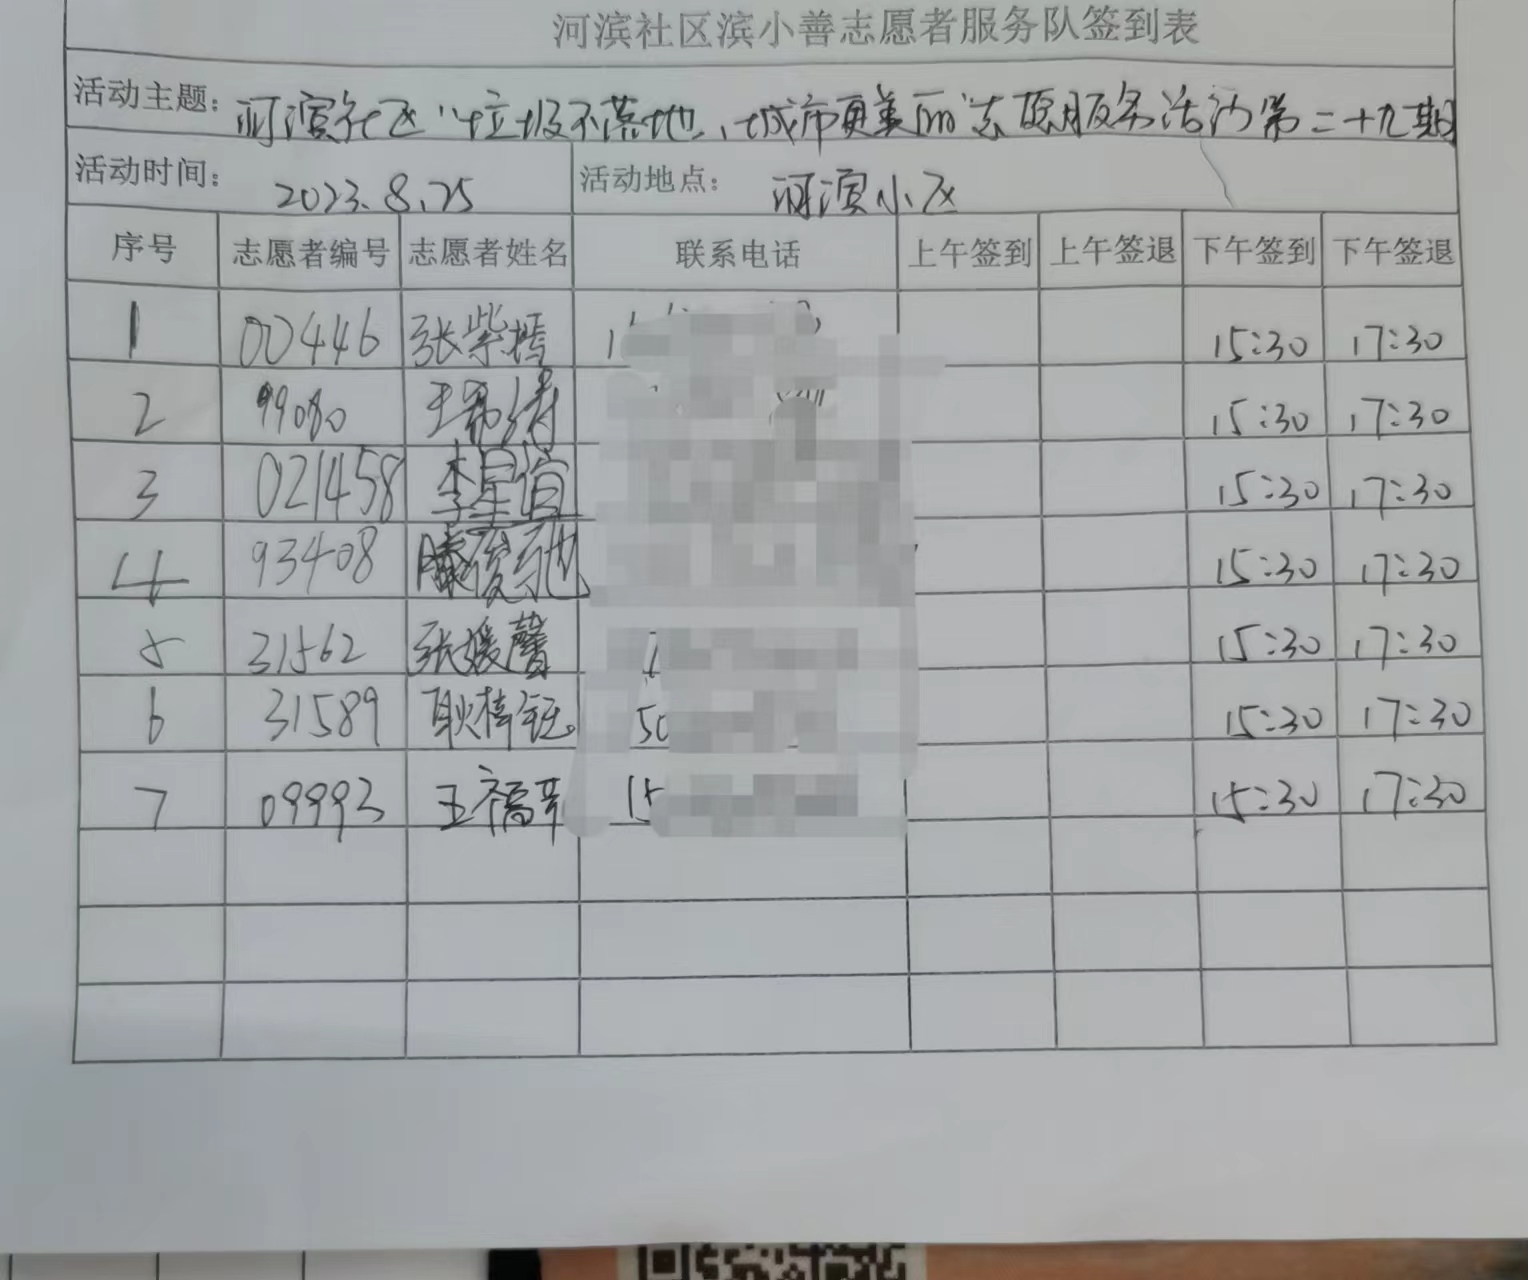 河滨社区滨小善志愿者服务队签到表
活动主题： 河滨社区“垃圾不落地，城市更美丽”志愿服务活动第二十九期
活动时间： 2023.8.25 活动地点： 河滨小区
序号 志愿者编号 志愿者姓名 联系电话 上午签到 上午签退 下午签到 下午签退
1 00446 张紫嫣 15:30 17:30
2 99080 王希涛 15:30 17:30
3 021458 李星谊 15:30 17:30
4 93408 滕俊驰 15:30 17:30
5 31562 张媛馨 15:30 17:30
6 31589 耿梓钰 50 15:30 17:30
7 09993 王福 15 15:30 17:30